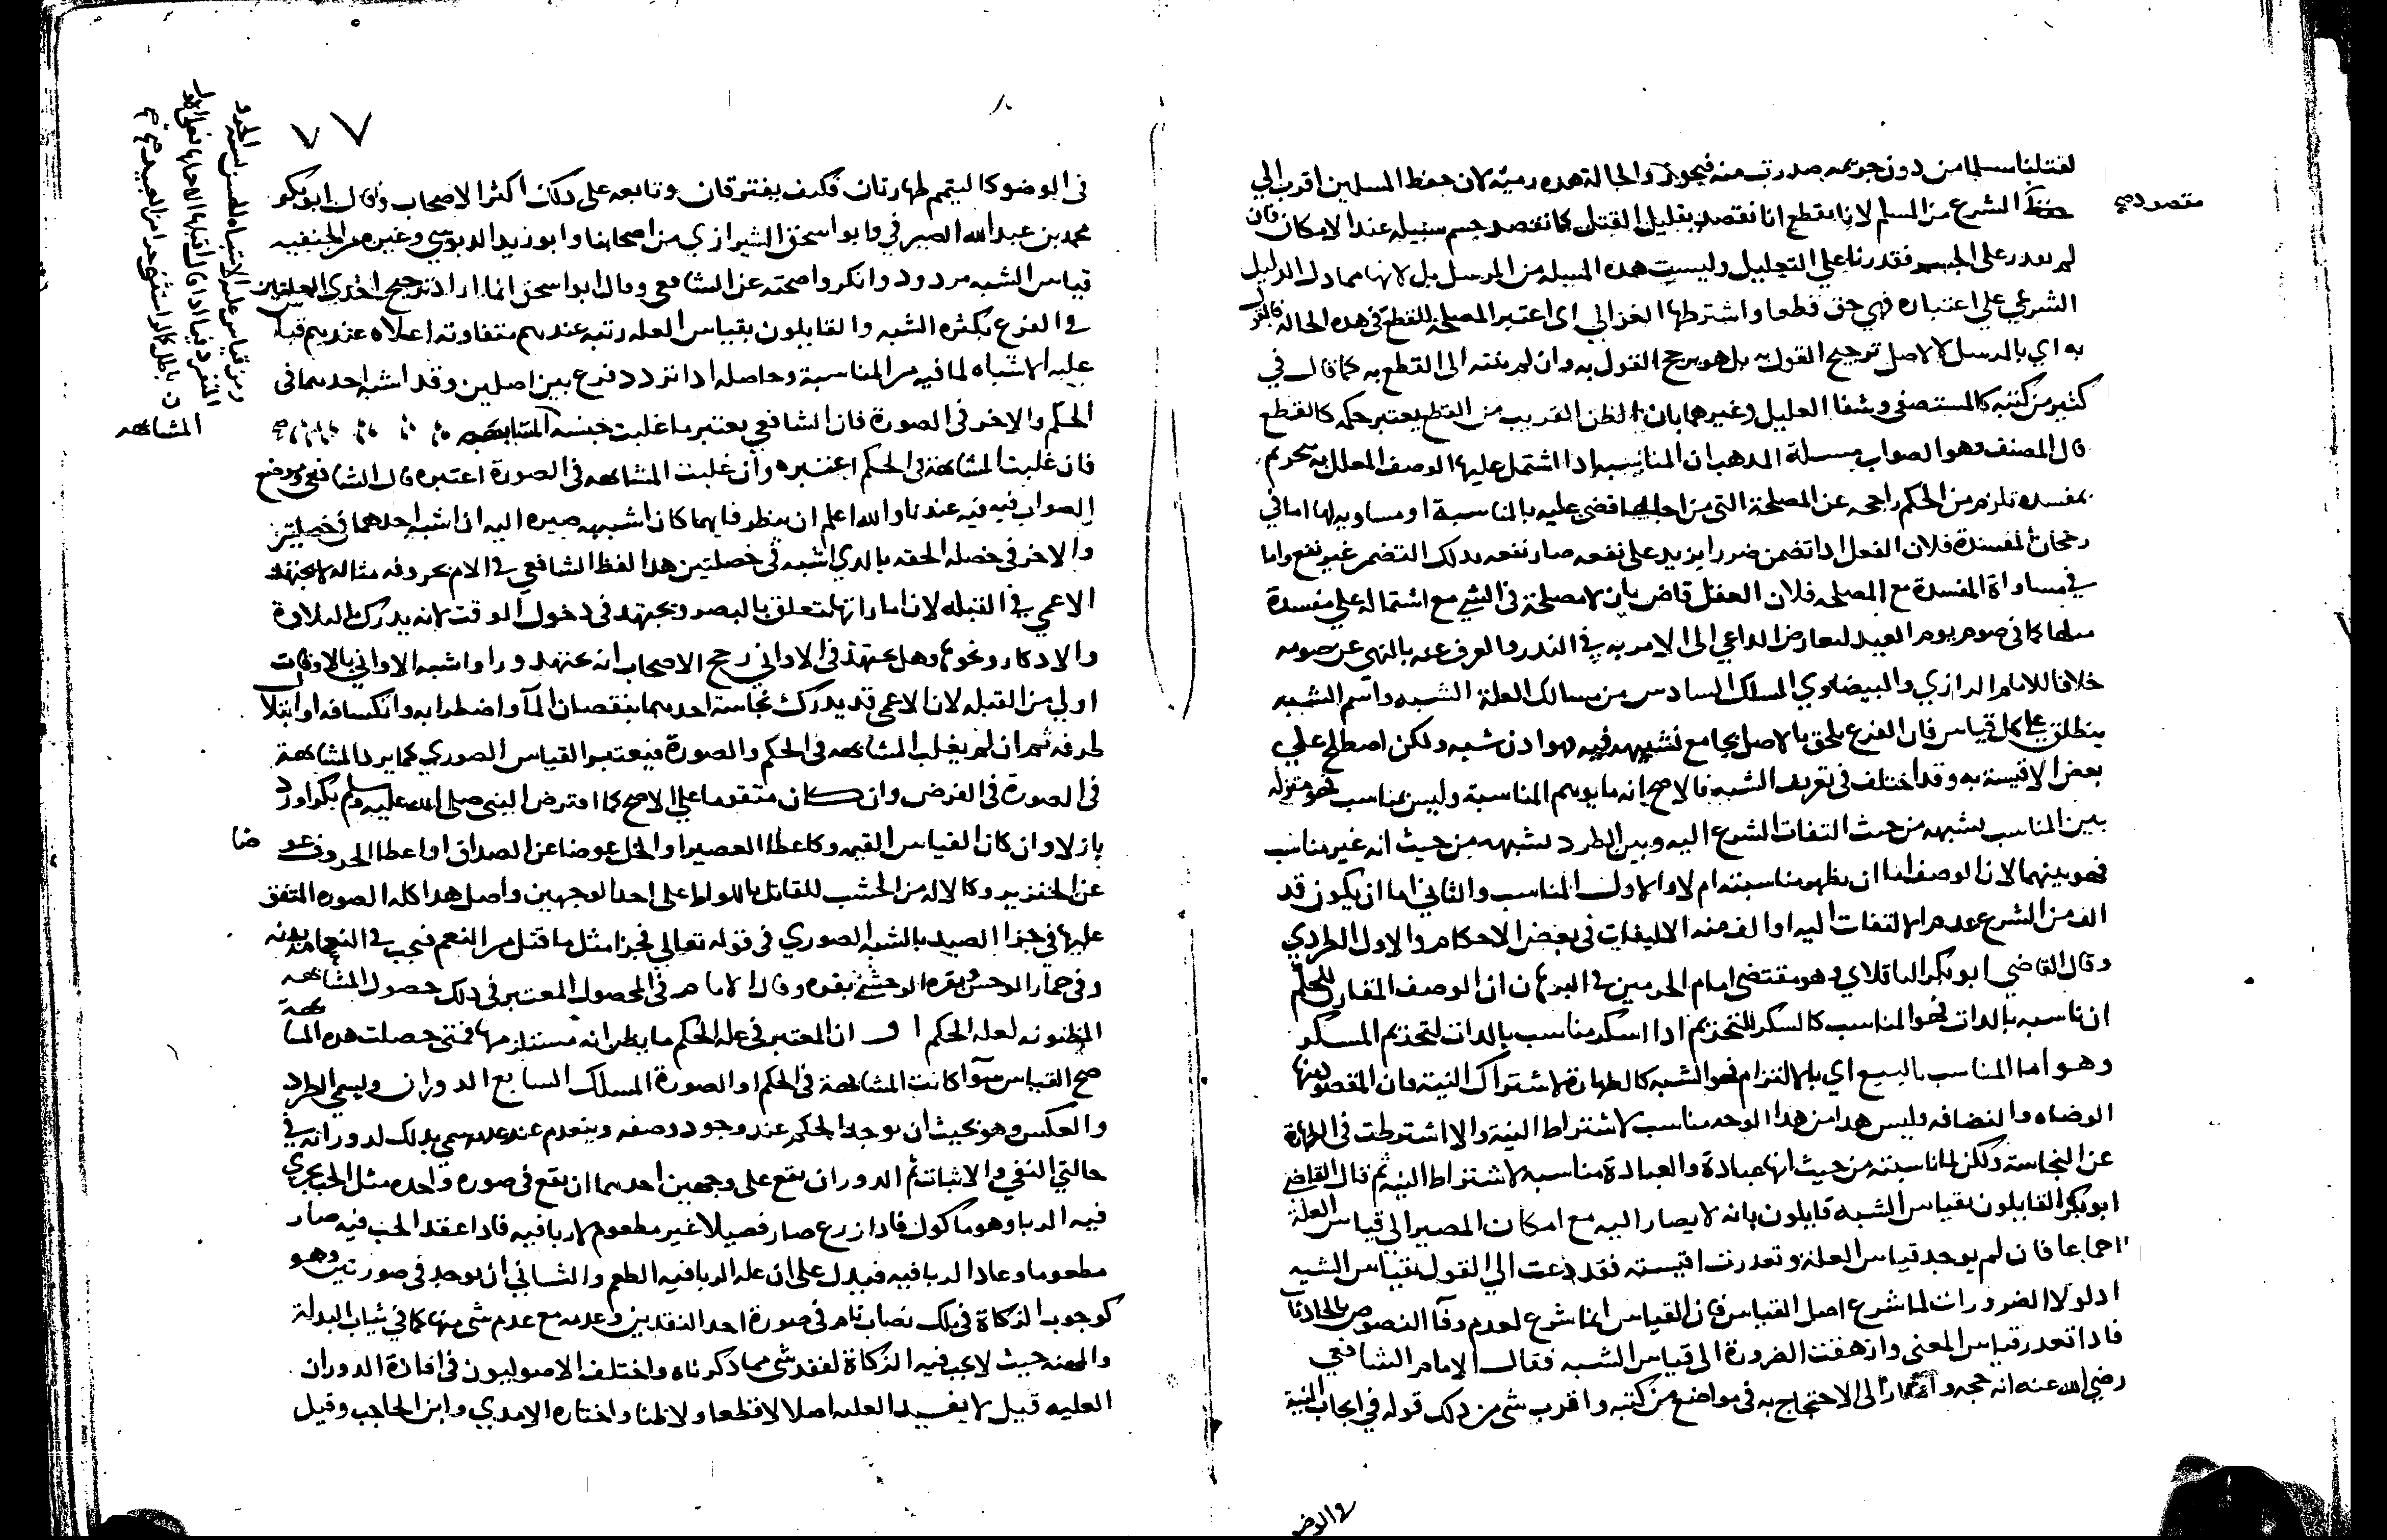 لقتلنا مسلما من دون جريمه صدرت منه فيجوز والحالة هذه رميه لان حفظ المسلمين اقرب الي
مقصود
الشرع من المسلم لانا نقطع انا نقصد بقليل القتل كما نقصد حسم سبيله عند الامكان فان
لم نقدر على الحسم فقد قدرنا علي التقليل وليست هذه المسيله من المرسل بل لانها مما دل الدليل
الشرعي علي اعتباره فهي حق قطعا واشترطها الغزالي اى اعتبر المصلحة للقطع فى هذه الحالة
به اي بالمرسل لا لاصل ترجيح القول به بل هو يرجح القول به وان لم ينته الى القطع به كما قال في
كثير من كتبه كالمستصفى وشفا العليل وغيرهما بان الظن القريب من القطع يعتبر حكمه كالقطع
قال المصنف وهو الصواب مسيلة المذهب ان المناسبه اذا اشتمل عليها الوصف المعلل به تنحرم
بمفسده تلزم من الحكم راجحه عن المصلحة التى من اجلها قضى عليه بالمناسبة او مساويه لها اما في
رجحان المفسدة فلان الفعل اذا تضمن ضررا يزيد على نفعه صار نفعه بذلك التضمن غير نفع واما
في مساواة المفسدة مع المصلحه فلان العقل قاض بان لا مصلحة فى الشي مع اشتماله علي مفسدة
مثلها كما فى صوم يوم العيد لتعارض الداعي الى الامر به في النذر والصرف عنه بالنهي عن صومه
خلافا للامام الرازي والبيضاوي المسلك السادس من مسالك العلة الشبه واسم الشبه
ينطلق علي كل قياس فان الفرع يلحق بالاصل بجامع تشبيهه فيه فهو اذن شبه ولكن اصطلح علي
بعض الاقيسة به وقد اختلف فى تعريف الشبه فالاصح انه ما يوهم المناسبة وليس بمناسب فهو منزله
بين المناسب يشبهه من حيث التفات الشرع اليه وبين الطرد يشبهه من حيث انه غير مناسب
فهو بينهما لان الوصف اما ان يظهر مناسبته ام لا والاول المناسب والثاني اما ان يكون قد
الف من الشرع عدم الالتفات اليه او الف منه الالتفات فى بعض الاحكام والاول الطردي
وقال القاضي ابو بكر الباقلاني وهو مقتضى امام الحرمين في البرهان ان الوصف المقارن للحكم
ان ناسبه بالذات فهو المناسب كالسكر للتحريم اذا السكر مناسب بالذات لتحريم المسكر
وهو اما المناسب بالتبع اي بالالتزام فهو الشبه كالطهارة لاشتراك النية فان المقصود منها
الوضاه والنضافه وليس هذا من هذا الوجه مناسب لاشتراط النية والا اشترطت فى الطهارة
عن النجاسة ولكن لمناسبته من حيث انها عبادة والعبادة مناسبه لاشتراط النيه ثم قال القاضي
ابو بكر القايلون بقياس الشبه قايلون بانه لا يصار اليه مع امكان المصير الى قياس العلة
اجماعا فان لم يوجد قياس العلة وتعذرت اقيسته فقد دعت الي القول بقياس الشبه
اذ لولا الضرورات لما شرع اصل القياس فان القياس انما شرع لعدم وفآ النصوص بالحادثات
فاذا تعذر قياس المعنى وارهفت الضرورة الى قياس الشبه فقال الامام الشافعي
رضي الله عنه انه حجه واشار الى الاحتجاج به فى مواضع من كتبه واقرب شى من ذلك قوله في ايجاب النية
في الوضو
٧٧
فى الوضو كالتيمم طهارتان فكيف يفترقان وتابعه على ذلك اكثر الاصحاب وقال ابو بكر
محمد بن عبد الله الصيرفي وابو اسحق الشيرازي من اصحابنا وابو زيد الدبوسي وغيره من الحنفيه
قياس الشبه مردود وانكروا صحته عن الشافعي وقال ابو اسحق انما اراد ترجيح احدي العلتين
في الفرع بكثرة الشبه والقايلون بقياس العله رتبه عندهم متفاوته اعلاه عندهم قياس
علبه الاشباه لما فيه من المناسبة وحاصله اذا تردد فرع بين اصلين وقد اشبه احدهما فى
الحكم والاخر فى الصورة فان الشافعي يعتبر ما غلبت
المشابهه
فان غلبت المشابهة فى الحكم اعتبره وان غلبت المشابهه فى الصورة اعتبره قال الشافعي وموضع
الصواب فيه فيه عندنا والله اعلم ان ينظر فايهما كان اشبهه صيره اليه ان اشبه احدهما فى خصلتين
والاخر فى خصله الحقه بالذي اشبه فى خصلتين هذا لفظ الشافعي في الام بحروفه مثاله لا يجتهد
الاعمي في القبله لان اماراتها تتعلق بالبصر ويجتهد فى دخول الوقت لانه يدرك بالتلاوة
والاذكار ونحوها وهل يجتهد فى الاواني رجح الاصحاب انه يجتهد وراوا شبه الاواني بالاوقات
اولي من القبله لان الاعمى قد يدرك نجاسة احدهما بنقصان المآ واضطرابه وانكشافه او ابتلال
طرفه ثم ان لم يغلب المشابهه فى الحكم والصورة فيعتبر القياس الصوري كما يرد المشابهة
فى الصورة فى القرض وان كان متقوما علي الاصح كما اقترض النبى صلى الله عليه وسلم بكرا ورد
بازلا وان كان القياس القيمه وكاعطا العصير او الخل عوضا عن الصداق او اعطا الخروف عوضا
عن الخنزير وكالاله من الخشب للقاتل باللواط على احد الوجهين واصل هذا كله الصوره المتفق
عليها فى جزا الصيد بالشبه الصوري فى قوله تعالي فجزا مثل ما قتل من النعم فيجب في النعامه بدنه
وفى حمار الوحش وبقره الوحشي بقره وقال الامام فى المحصول المعتبر فى ذلك حصول المشابهه
المظنونه لعله الحكم او ان المعتبر فى عله الحكم ما يظن انه مستلزم لها فمتى حصلت هذه المشابهة
صح القياس سوآ كانت المشابهة فى الحكم او الصورة المسلك السابع الدوران ويسمي الطرد
والعكس وهو بحيث ان يوجد الحكم عند وجود وصفه وينعدم عند عدمه سمي بذلك لدورانه في
حالتي النفي والاثبات ثم الدوران يقع على وجهين احدهما ان يقع فى صوره واحده مثل الحب يجري
فيه الربا وهو ماكول فاذا زرع صار قصيلا غير مطعوم لا ربا فيه فاذا عقد الحب فيه صار
مطعوما وعاد الربا فيه فيدل على ان عله الربا فيه الطعم والثاني ان يوجد فى صورتين وهو
كوجوب الزكاة فى ملك نصاب تام فى صورة احد النقدين وعدمه مع عدم شى منها كما فى ثياب البذلة
والمهنه حيث لا يجب فيه الزكاة لفقد شى مما ذكرناه واختلف الاصوليون فى افادة الدوران
العليه قيل لا يفيد العلية اصلا لا قطعا ولا ظنا واختاره الامدي وابن الحاجب وقيل